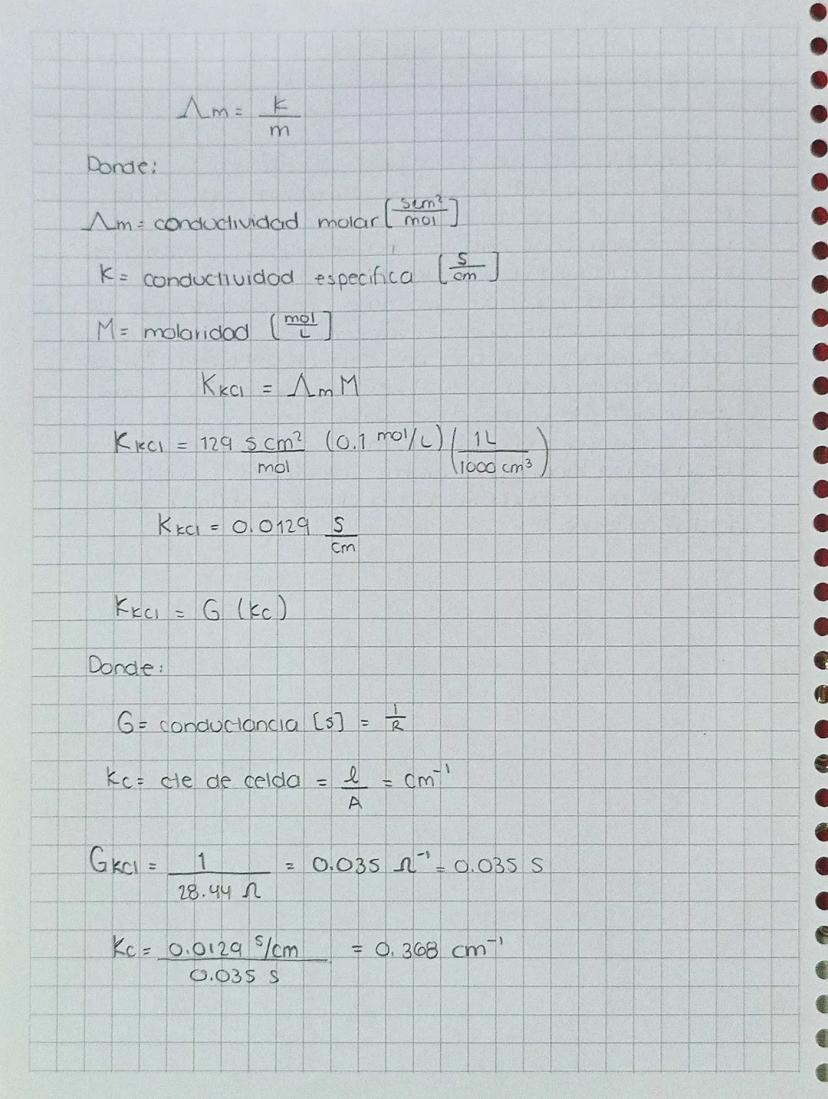 Λm = k/m
Donde:
Λm = conductividad molar [Scm²/mol]
K = conductividad especifica [S/cm]
M = molaridad [mol/L]
K_KCl = Λm M
K_KCl = 129 S cm²/mol (0.1 mol/L) (1L/1000 cm³)
K_KCl = 0.0129 S/cm
K_KCl = G (kc)
Donde:
G = conductancia [s] = 1/R
Kc = cte de celda = l/A = cm⁻¹
G_KCl = 1/28.44 Ω = 0.035 Ω⁻¹ = 0.035 S
Kc = 0.0129 S/cm / 0.035 S = 0.368 cm⁻¹